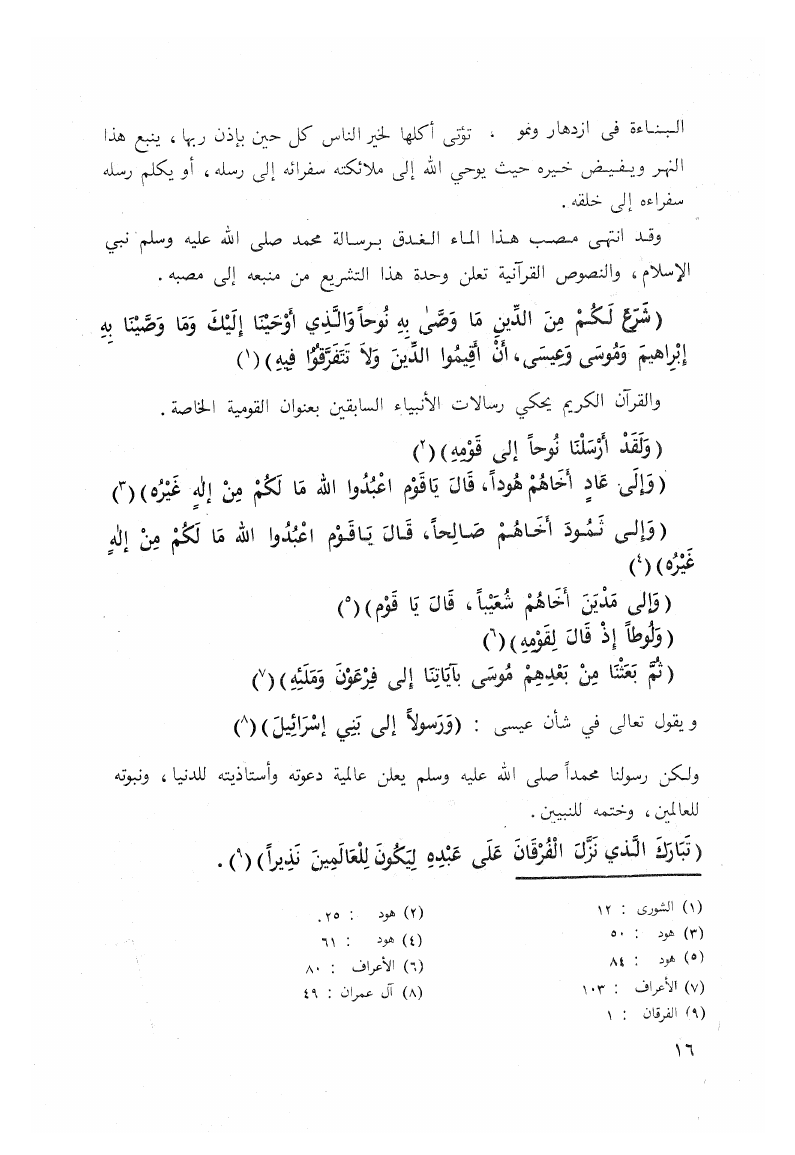 البناءة فى ازدهار ونمو . تؤتى أكلها لخير الناس كل حين بإذن ربها ، ينبع هذا
النهر ويفيض خيره حيث يوحي الله إلى ملائكته سفرائه إلى رسله ، أو يكلم رسله
سفراءه إلى خلقه .
وقد انتهى مصب هذا الماء الغدق برسالة محمد صلى الله عليه وسلم نبي
الإسلام ، والنصوص القرآنية تعلن وحدة هذا التشريع من منبعه إلى مصبه .
( شَرَعَ لَكُمْ مِنَ الدِّينِ مَا وَصَّىٰ بِهِ نُوحاً وَالَّذِي أَوْحَيْنَا إِلَيْكَ وَمَا وَصَّيْنَا بِهِ
إِبْراهِيمَ وَمُوسَى وَعِيسَى ، أَنْ أَقِيمُوا الدِّينَ وَلاَ تَتَفَرَّقُوْا فِيهِ ) (١)
والقرآن الكريم يحكي رسالات الأنبياء السابقين بعنوان القومية الخاصة .
( وَلَقَدْ أَرْسَلْنَا نُوحاً إلى قَوْمِهِ ) (٢)
( وَإِلَى عَادٍ أَخَاهُمْ هُوداً ، قَالَ يَاقَوْمِ اعْبُدُوا الله مَا لَكُمْ مِنْ إلهٍ غَيْرُه ) (٣)
( وَإلى ثَمُودَ أَخَاهُمْ صَالِحاً ، قَالَ يَاقَوْمِ اعْبُدُوا الله مَا لَكُمْ مِنْ إلهٍ
غَيْرُه ) (٤)
( وَإلى مَدْيَنَ أَخَاهُمْ شُعَيْباً ، قَالَ يَا قَوْمِ ) (٥)
( وَلُوطاً إِذْ قَالَ لِقَوْمِهِ ) (٦)
( ثُمَّ بَعَثْنَا مِنْ بَعْدِهِمْ مُوسَى بآيَاتِنَا إلى فِرْعَوْنَ وَمَلَئِهِ ) (٧)
ويقول تعالى في شأن عيسى : ( وَرَسولاً إلى بَنِي إسْرَائِيلَ ) (٨)
ولكن رسولنا محمداً صلى الله عليه وسلم يعلن عالمية دعوته وأستاذيته للدنيا ، ونبوته
للعالمين ، وختمه للنبيين .
( تَبَارَكَ الَّذي نَزَّلَ الْفُرْقَانَ عَلَى عَبْدِهِ لِيَكُونَ لِلْعَالَمِينَ نَذِيراً ) (٩) .
(١) الشورى : ١٢ (٢) هود : ٢٥ .
(٣) هود : ٥٠ (٤) هود : ٦١
(٥) هود : ٨٤ (٦) الأعراف : ٨٠
(٧) الأعراف : ١٠٣ (٨) آل عمران : ٤٩
(٩) الفرقان : ١
١٦